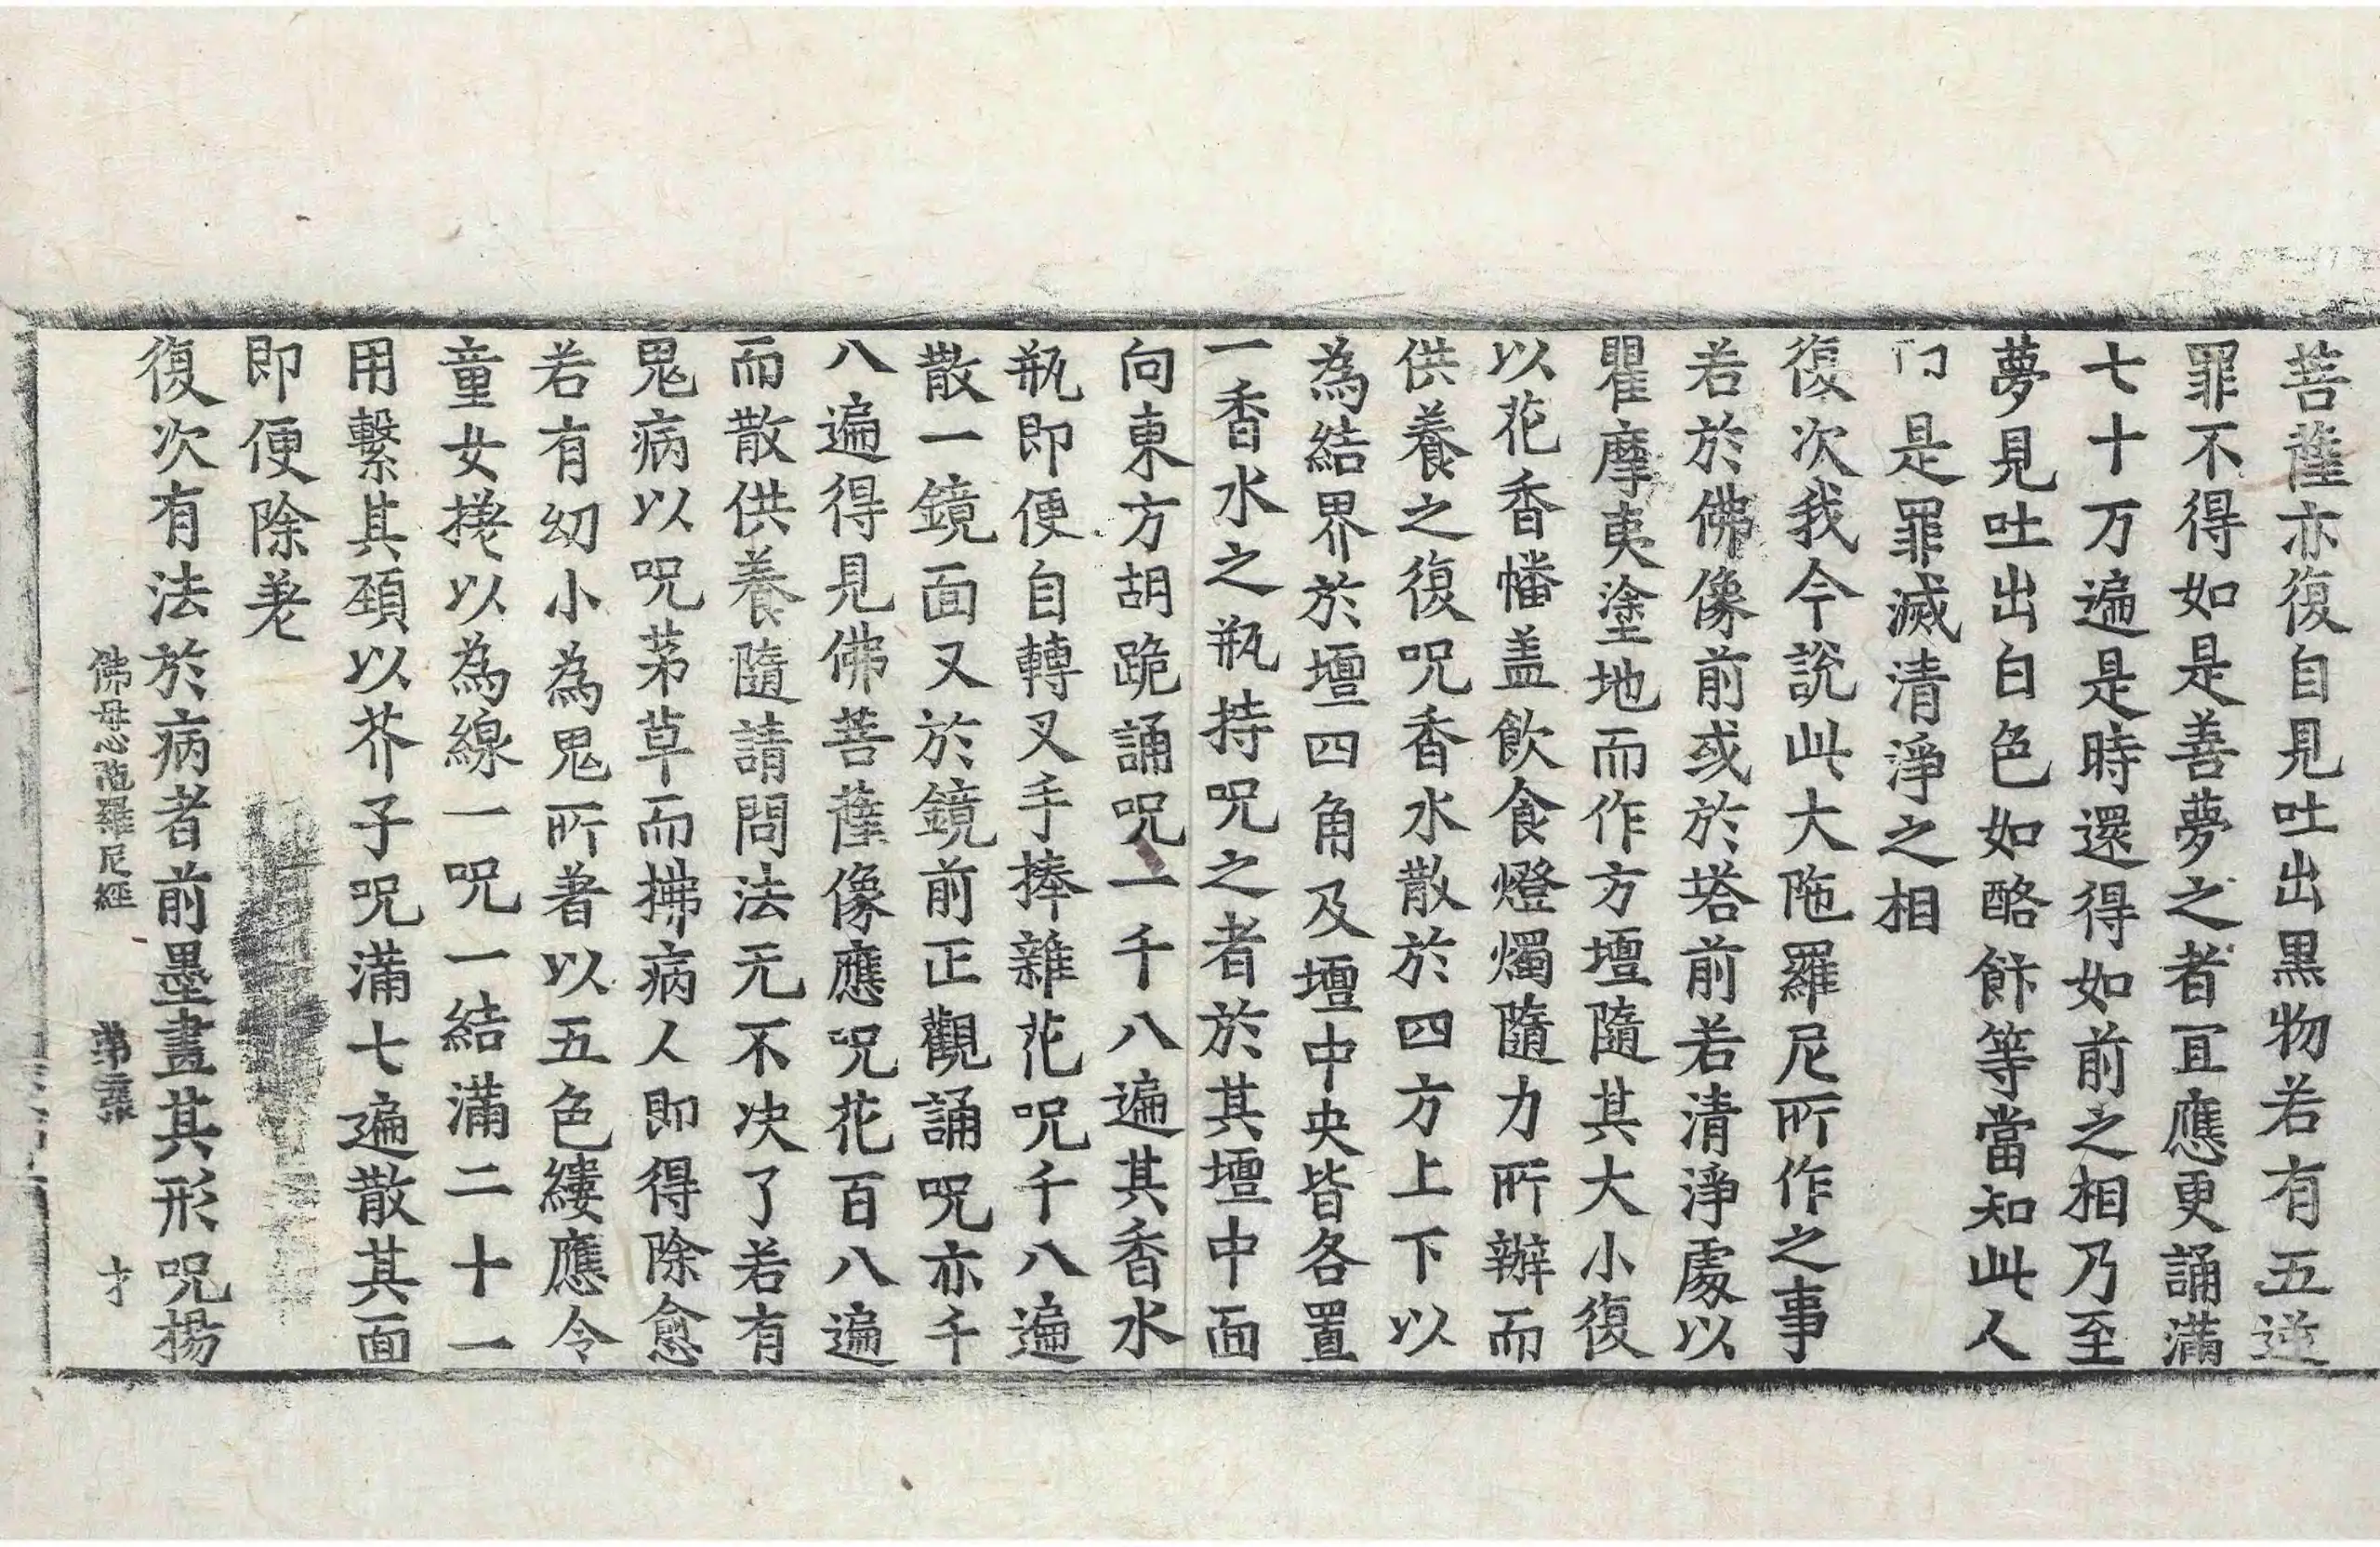 菩薩亦復自見吐出黒物若有五逆
罪不得如是善夢之者冝應更誦滿
七十万遍是時還得如前之相乃至
夢見吐出白色如酪飰等當知此人
是罪滅清淨之相
復次我今說此大陁羅尼所作之事
若於佛像前或於塔前若清淨處以
瞿摩夷塗地而作方壇隨其大小復
以花香幡盖飲食燈燭隨力所辦而
供養之復呪香水散於四方上下以
為結界於壇四角及壇中央皆各置
一香水之瓶持呪之者於其壇中面
向東方胡跪誦呪一千八遍其香水
瓶即便自轉叉手捧雜花呪千八遍
散一鏡面又於鏡前正觀誦呪亦千
八遍得見佛菩薩像應呪花百八遍
而散供養隨請問法无不决了若有
鬼病以呪茅草而拂病人即得除愈
若有幼小為鬼所著以五色縷應令
童女搓以為線一呪一結滿二十一
用繫其頚以芥子呪滿七遍散其面
即便除差
復次有法於病者前墨畫其形呪揚
佛母心陁羅尼經 第二張 才